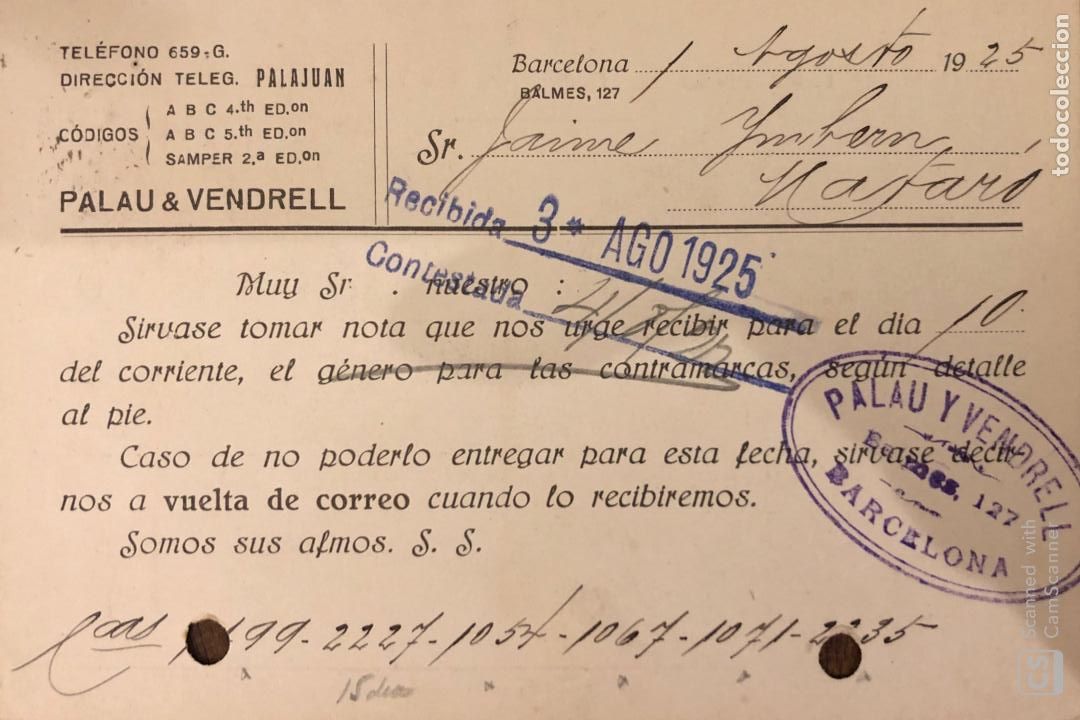 TELÉFONO 659-G.
DIRECCIÓN TELEG. PALAJUAN
CÓDIGOS
A B C 4.th ED.on
A B C 5.th ED.on
SAMPER 2.ª ED.on
PALAU & VENDRELL
Barcelona 1 Agosto 1925
BALMES, 127
Sr. Jaime Ymbern,
Mataró
Recibida 3 * AGO 1925
Contestada
Muy Sr. nuestro:
Sirvase tomar nota que nos urge recibir para el dia 10
del corriente, el género para las contramarcas, según detalle
al pie.
Caso de no poderlo entregar para esta fecha, sirvase decir-
nos a vuelta de correo cuando lo recibiremos.
Somos sus afmos. S. S.
PALAU Y VENDRELL
Balmes, 127
BARCELONA
199-2227-1054-1067-1071-2235
todocoleccion
CS Scanned with
CamScanner